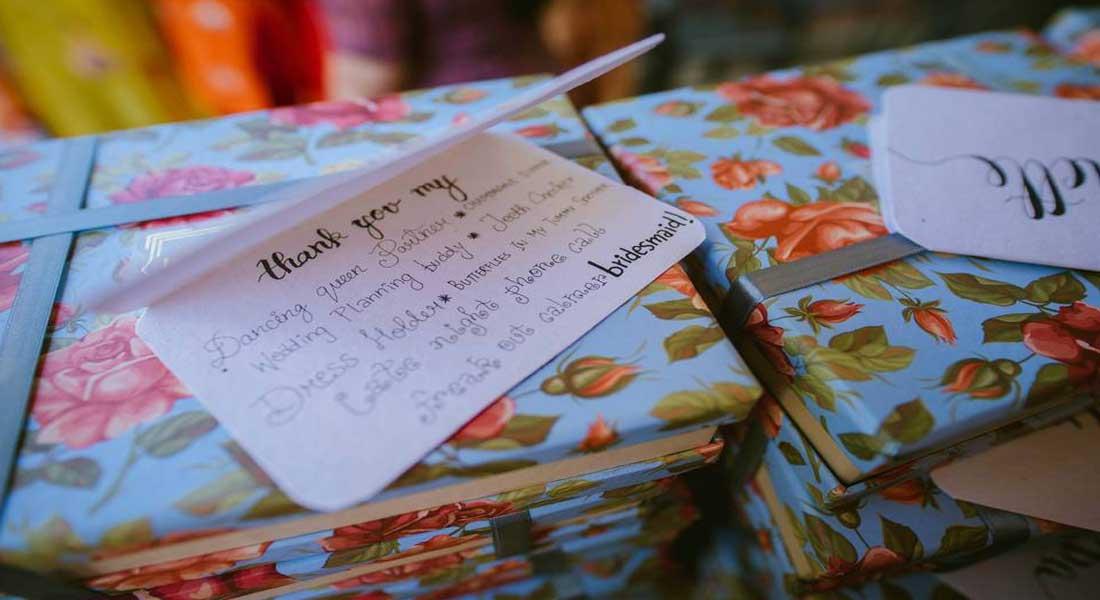 thank you my
Dancing queen Partner *
Wedding Planning buddy * Teeth Checker
Dress Holder * BUTTERFLIES IN MY TUMMY
Late night phone call
freak out
bridesmaid!